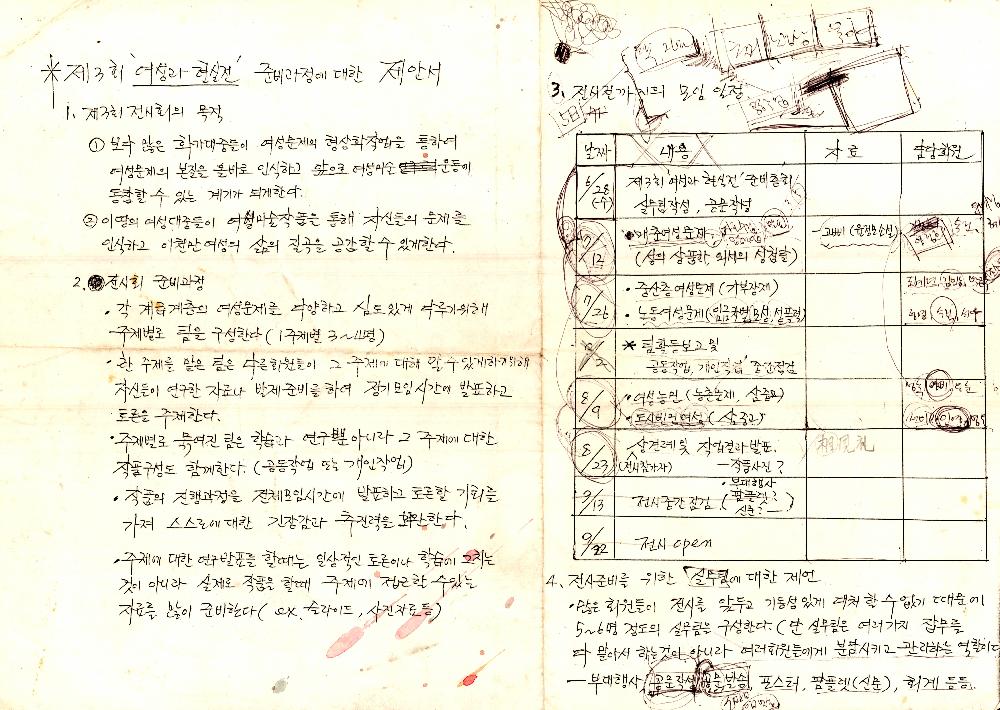 * 제3회 '여성과 현실전' 준비과정에 대한 제안서
1. 제3회 전시회의 목적
① 보다 많은 화가대중들이 여성문제의 형상화작업을 통하여
여성문제의 본질을 올바로 인식하고 앞으로 여성미술 운동에
동참할 수 있는 계기가 되게한다.
② 이땅의 여성대중들이 여성미술작품을 통해 자신들의 문제를
인식하고 이한반 여성의 삶의 질곡을 공감할 수 있게한다.
2. 전시회 준비과정
· 각 계급계층의 여성문제를 다양하고 심도있게 다루기위해
주제별로 팀을 구성한다 (1주제별 3~4명)
· 한 주제를 맡은 팀은 다른회원들이 그 주제에 대해 알 수 있게하기위해
자신들이 연구한 자료나 발제준비를 하여 정기모임시간에 발표하고
토론을 주재한다.
· 주제별로 묶여진 팀은 학습과 연구뿐 아니라 그 주제에 대한
작품구성도 함께한다. (공동작업 또는 개인작업)
· 작품의 진행과정을 전체모임시간에 발표하고 토론할 기회를
가져 스스로에 대한 긴장감과 추진력을 확인한다.
· 주제에 대한 연구발표를 할때는 일상적인 토론이나 학습에 그치는
것이 아니라 실제로 작품을 할때 주제에 접근할 수 있는
자료를 많이 준비한다 (ex. 슬라이드, 사진자료등)
3. 전시전까지의 모임 일정
5일
날짜 내용 자료 담당회원
6/28 (수) 제3회 '여성과 현실전' 준비총회
실무팀작성, 공문작성
7/12 · 매춘여성문제
(성의 상품화 의서의 성침탈)
7/26 · 중산층 여성문제 (가부장제)
· 노동여성문제 (임금차별, 모성, 성폭력)
8/2 * 팀활동보고 및
공동작업, 개인작업 중간점검
8/9 · 여성농민 (농촌문제, 삼중고)
· 도시빈민여성 (삼중고)
8/23 상견례 및 작업결과발표 相見礼
(전시참가자) — 작품사진?
· 부대행사
9/13 전시중간점검 (팜플렛?
신문?
9/22 전시 open
4. 전시준비를 위한 실무팀에 대한 제언
· 많은 회원들이 전시를 앞두고 기동성있게 대처할 수 없기 때문에
5~6명 정도의 실무팀을 구성한다 (단 실무팀은 여러가지 잡무를
다 맡아서 하는것이 아니라 여러회원들에게 분담시키고 관리하는 역할이다
— 부대행사, 공문작성, 공문발송, 포스터, 팜플렛(신문), 회계 등등.